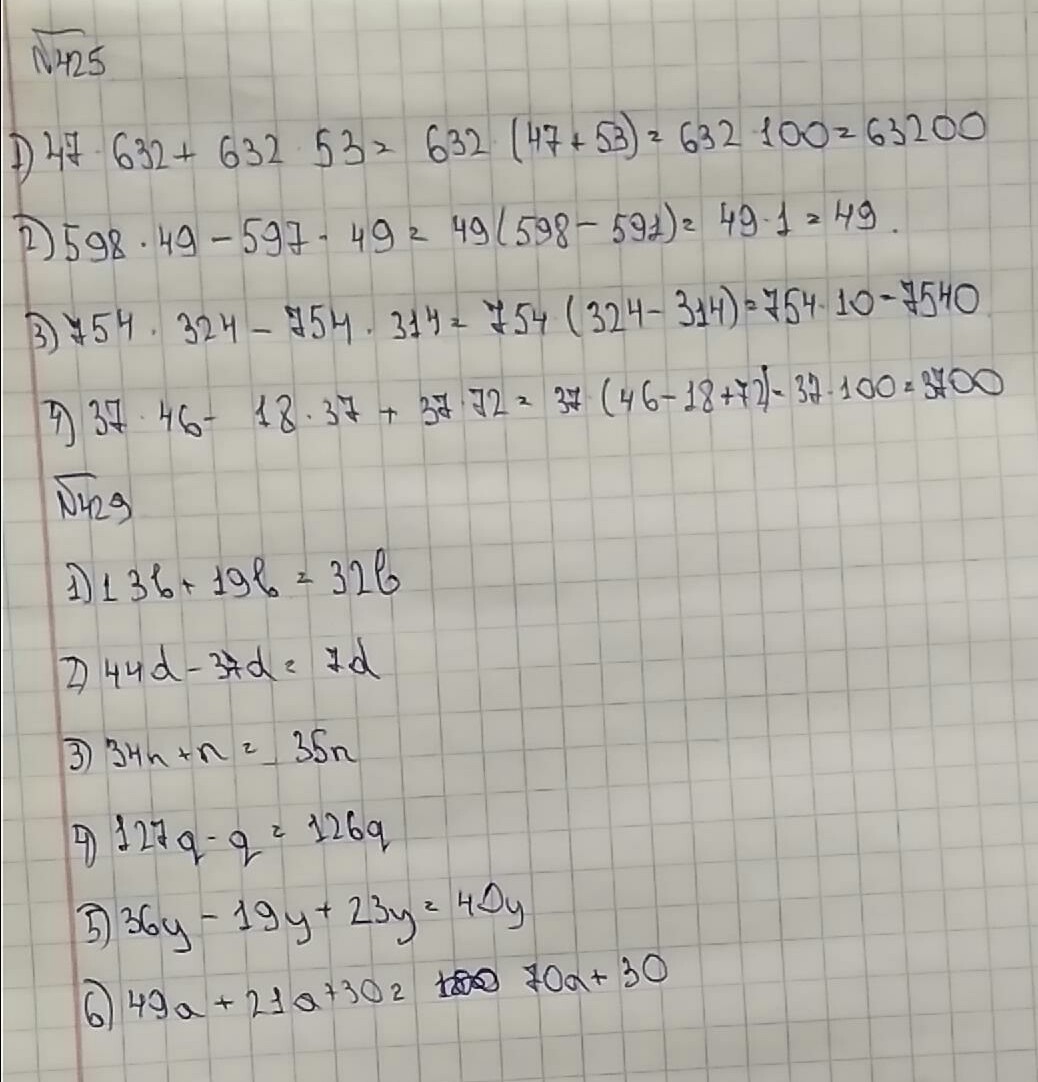 №425
1) 47 · 632 + 632 · 53 = 632 · (47 + 53) = 632 · 100 = 63200
2) 598 · 49 - 597 · 49 = 49 (598 - 597) = 49 · 1 = 49.
3) 754 · 324 - 754 · 314 = 754 · (324 - 314) = 754 · 10 = 7540
4) 37 · 46 - 18 · 37 + 37 · 72 = 37 · (46 - 18 + 72) = 37 · 100 = 3700
№429
1) 13b + 19b = 32b
2) 44d - 37d = 7d
3) 34n + n = 35n
4) 127q - q = 126q
5) 36y - 19y + 23y = 40y
6) 49a + 21a + 30 = 70a + 30